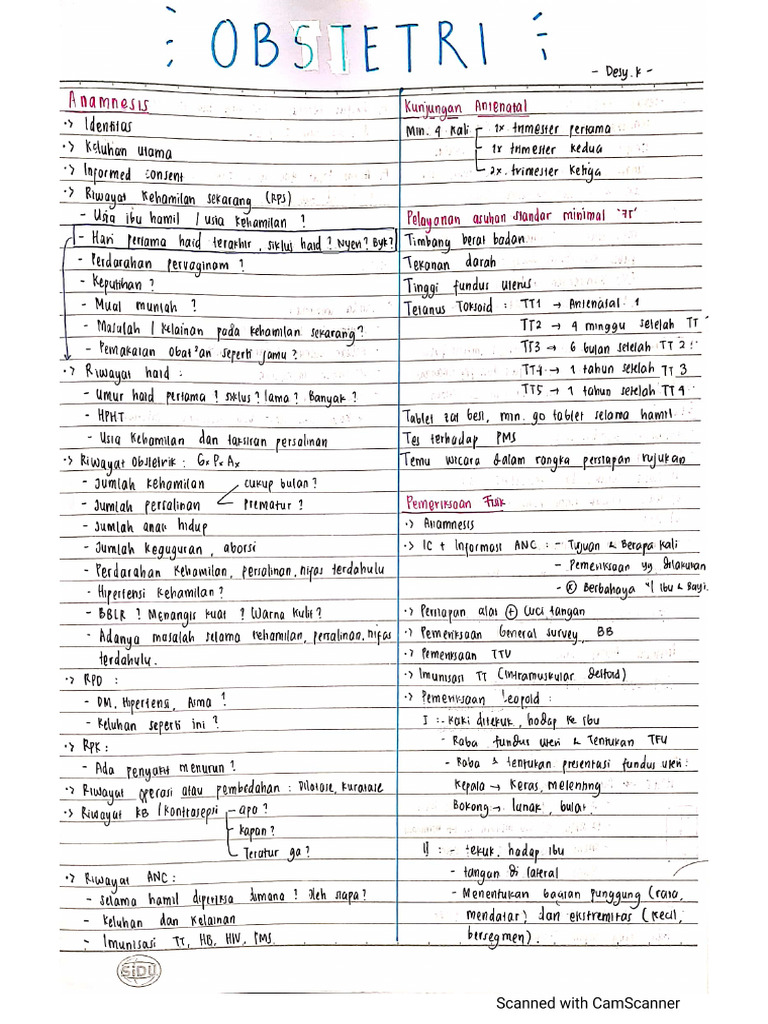 OBSTETRI
- Desy.k -
Anamnesis
·> Identitas
·> Keluhan utama
·> Informed consent
·> Riwayat Kehamilan sekarang (RPS)
- Usia ibu hamil / usia kehamilan ?
- Hari pertama haid terakhir, siklus haid ? Nyeri ? Byk?
- Perdarahan pervaginam ?
- Keputihan ?
- Mual muntah ?
- Masalah / Kelainan pada kehamilan sekarang ?
- Pemakaian Obat"an seperti jamu ?
·> Riwayat haid :
- Umur haid pertama ? siklus ? lama ? Banyak ?
- HPHT
- Usia Kehamilan dan taksiran persalinan
·> Riwayat Obstetrik : Gx Px Ax
- Jumlah kehamilan
cukup bulan ?
- Jumlah persalinan
Prematur ?
- Jumlah anak hidup
- Jumlah keguguran, aborsi
- Perdarahan Kehamilan, persalinan, nifas terdahulu
- Hipertensi Kehamilan ?
- BBLR ? Menangis kuat ? Warna kulit ?
- Adanya masalah selama kehamilan, persalinan, nifas
terdahulu.
·> RPD :
- DM, Hipertensi, Asma ?
- Keluhan seperti ini ?
·> RPK :
- Ada penyakit menurun ?
·> Riwayat operasi atau pembedahan : Dilatase, kuratase
·> Riwayat KB / Kontrasepsi
apa ?
Kapan ?
Teratur ga ?
·> Riwayat ANC :
- selama hamil diperiksa dimana ? Oleh siapa ?
- Keluhan dan kelainan
- Imunisasi TT, HB, HIV, PMS
SiDU
Kunjungan Antenatal
Min. 4 Kali
1x trimester pertama
1x trimester kedua
2x. trimester Ketiga
Pelayanan asuhan standar minimal "7T"
Timbang berat badan
Tekanan darah
Tinggi fundus uterus
Tetanus Toksoid : TT1 → Antenatal 1
TT2 → 4 minggu setelah TT
TT3 → 6 bulan setelah TT 2
TT4 → 1 tahun setelah TT 3
TT5 → 1 tahun setelah TT 4
Tablet zat besi, min. 90 tablet selama hamil
Tes terhadap PMS
Temu wicara dalam rangka persiapan rujukan
Pemeriksaan Fisik
·> Anamnesis
·> IC + Informasi ANC : - Tujuan & Berapa Kali
- Pemeriksaan yg dilakukan
- Berbahaya u/ Ibu & Bayi.
·> Persiapan alat ⊕ Cuci tangan
·> Pemeriksaan General survey, BB
·> Pemeriksaan TTV
·> Imunisasi TT (Intramuskular deltoid)
·> Pemeriksaan Leopold :
I : - Kaki ditekuk, hadap ke ibu
- Raba fundus uteri & Tentukan TFU
- Raba & tentukan presentasi fundus uteri :
Kepala → Keras, melenting
Bokong → lunak, bulat.
II : - tekuk, hadap ibu
- tangan di lateral
- Menentukan bagian punggung (rata,
mendatar) dan ekstremitas (kecil,
bersegmen).
Scanned with CamScanner